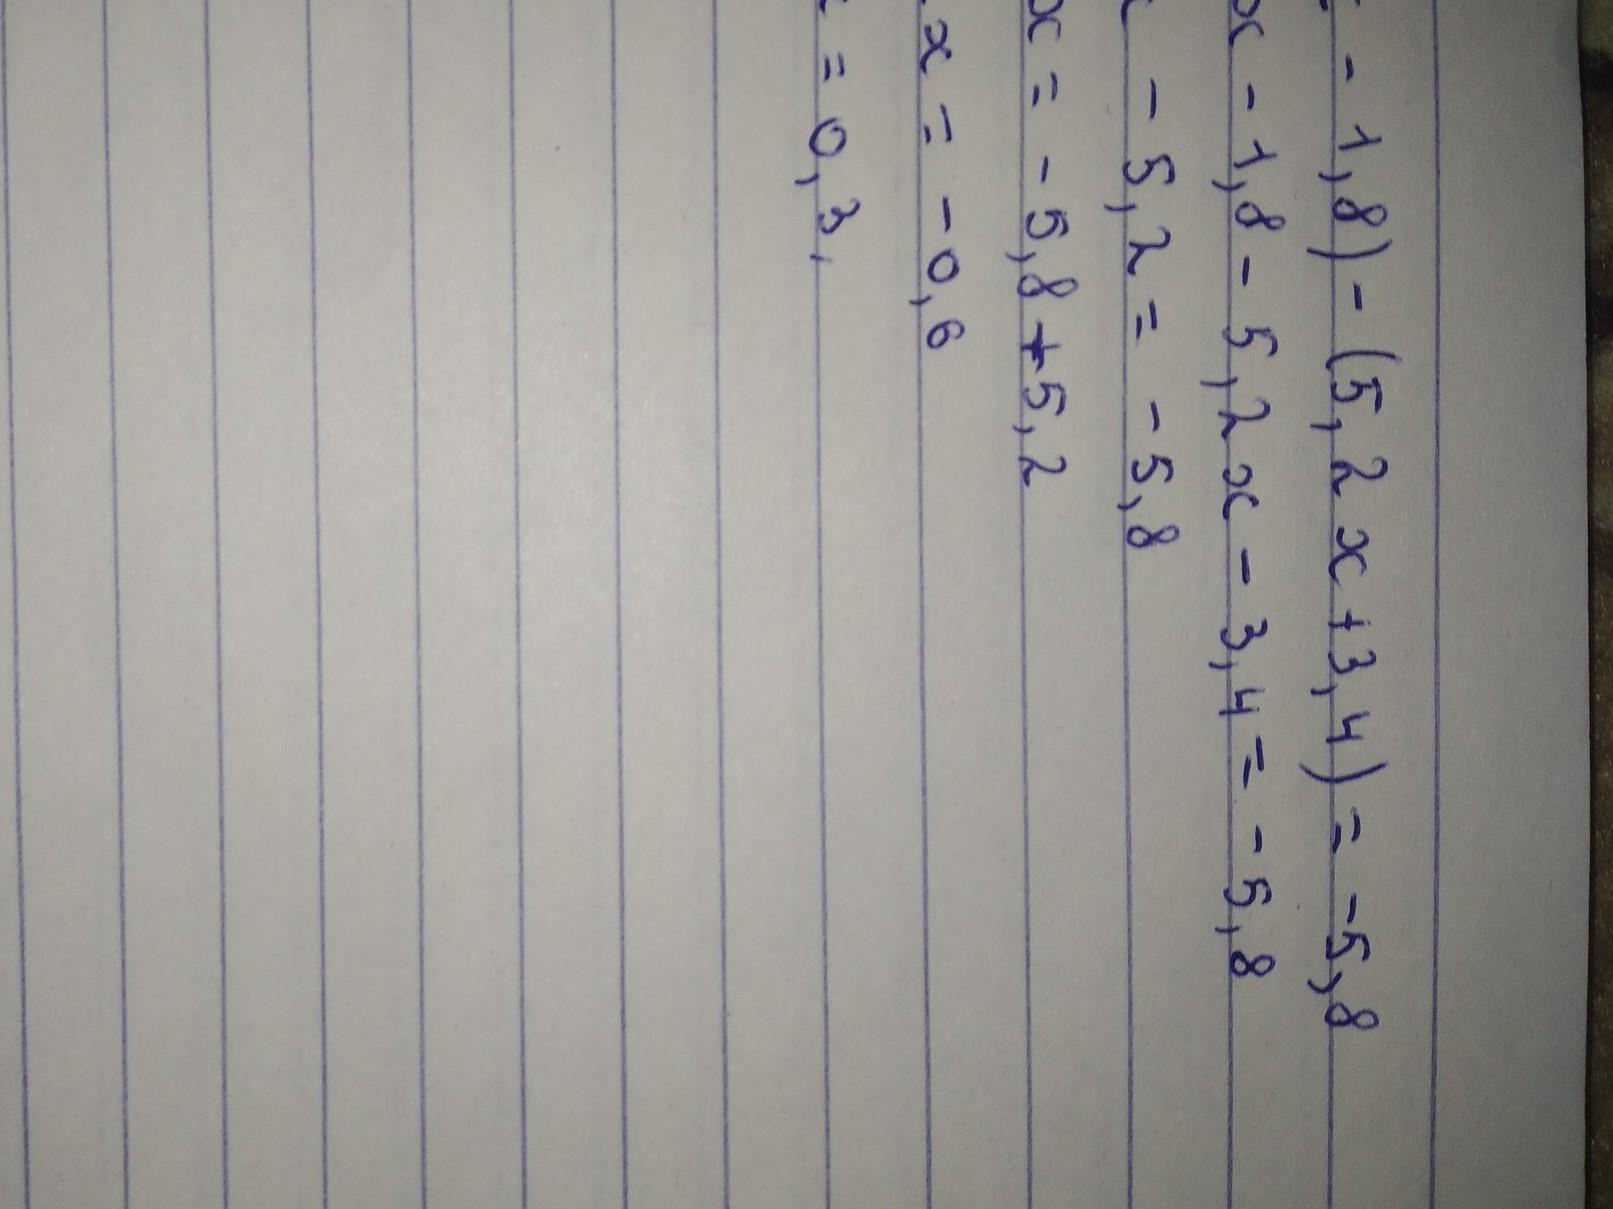 - 1,8) - (5,2x+3,4) = -5,8
x - 1,8 - 5,2x - 3,4 = - 5,8
- 5,2 = - 5,8
x = - 5,8 + 5,2
x = - 0,6
= 0,3,